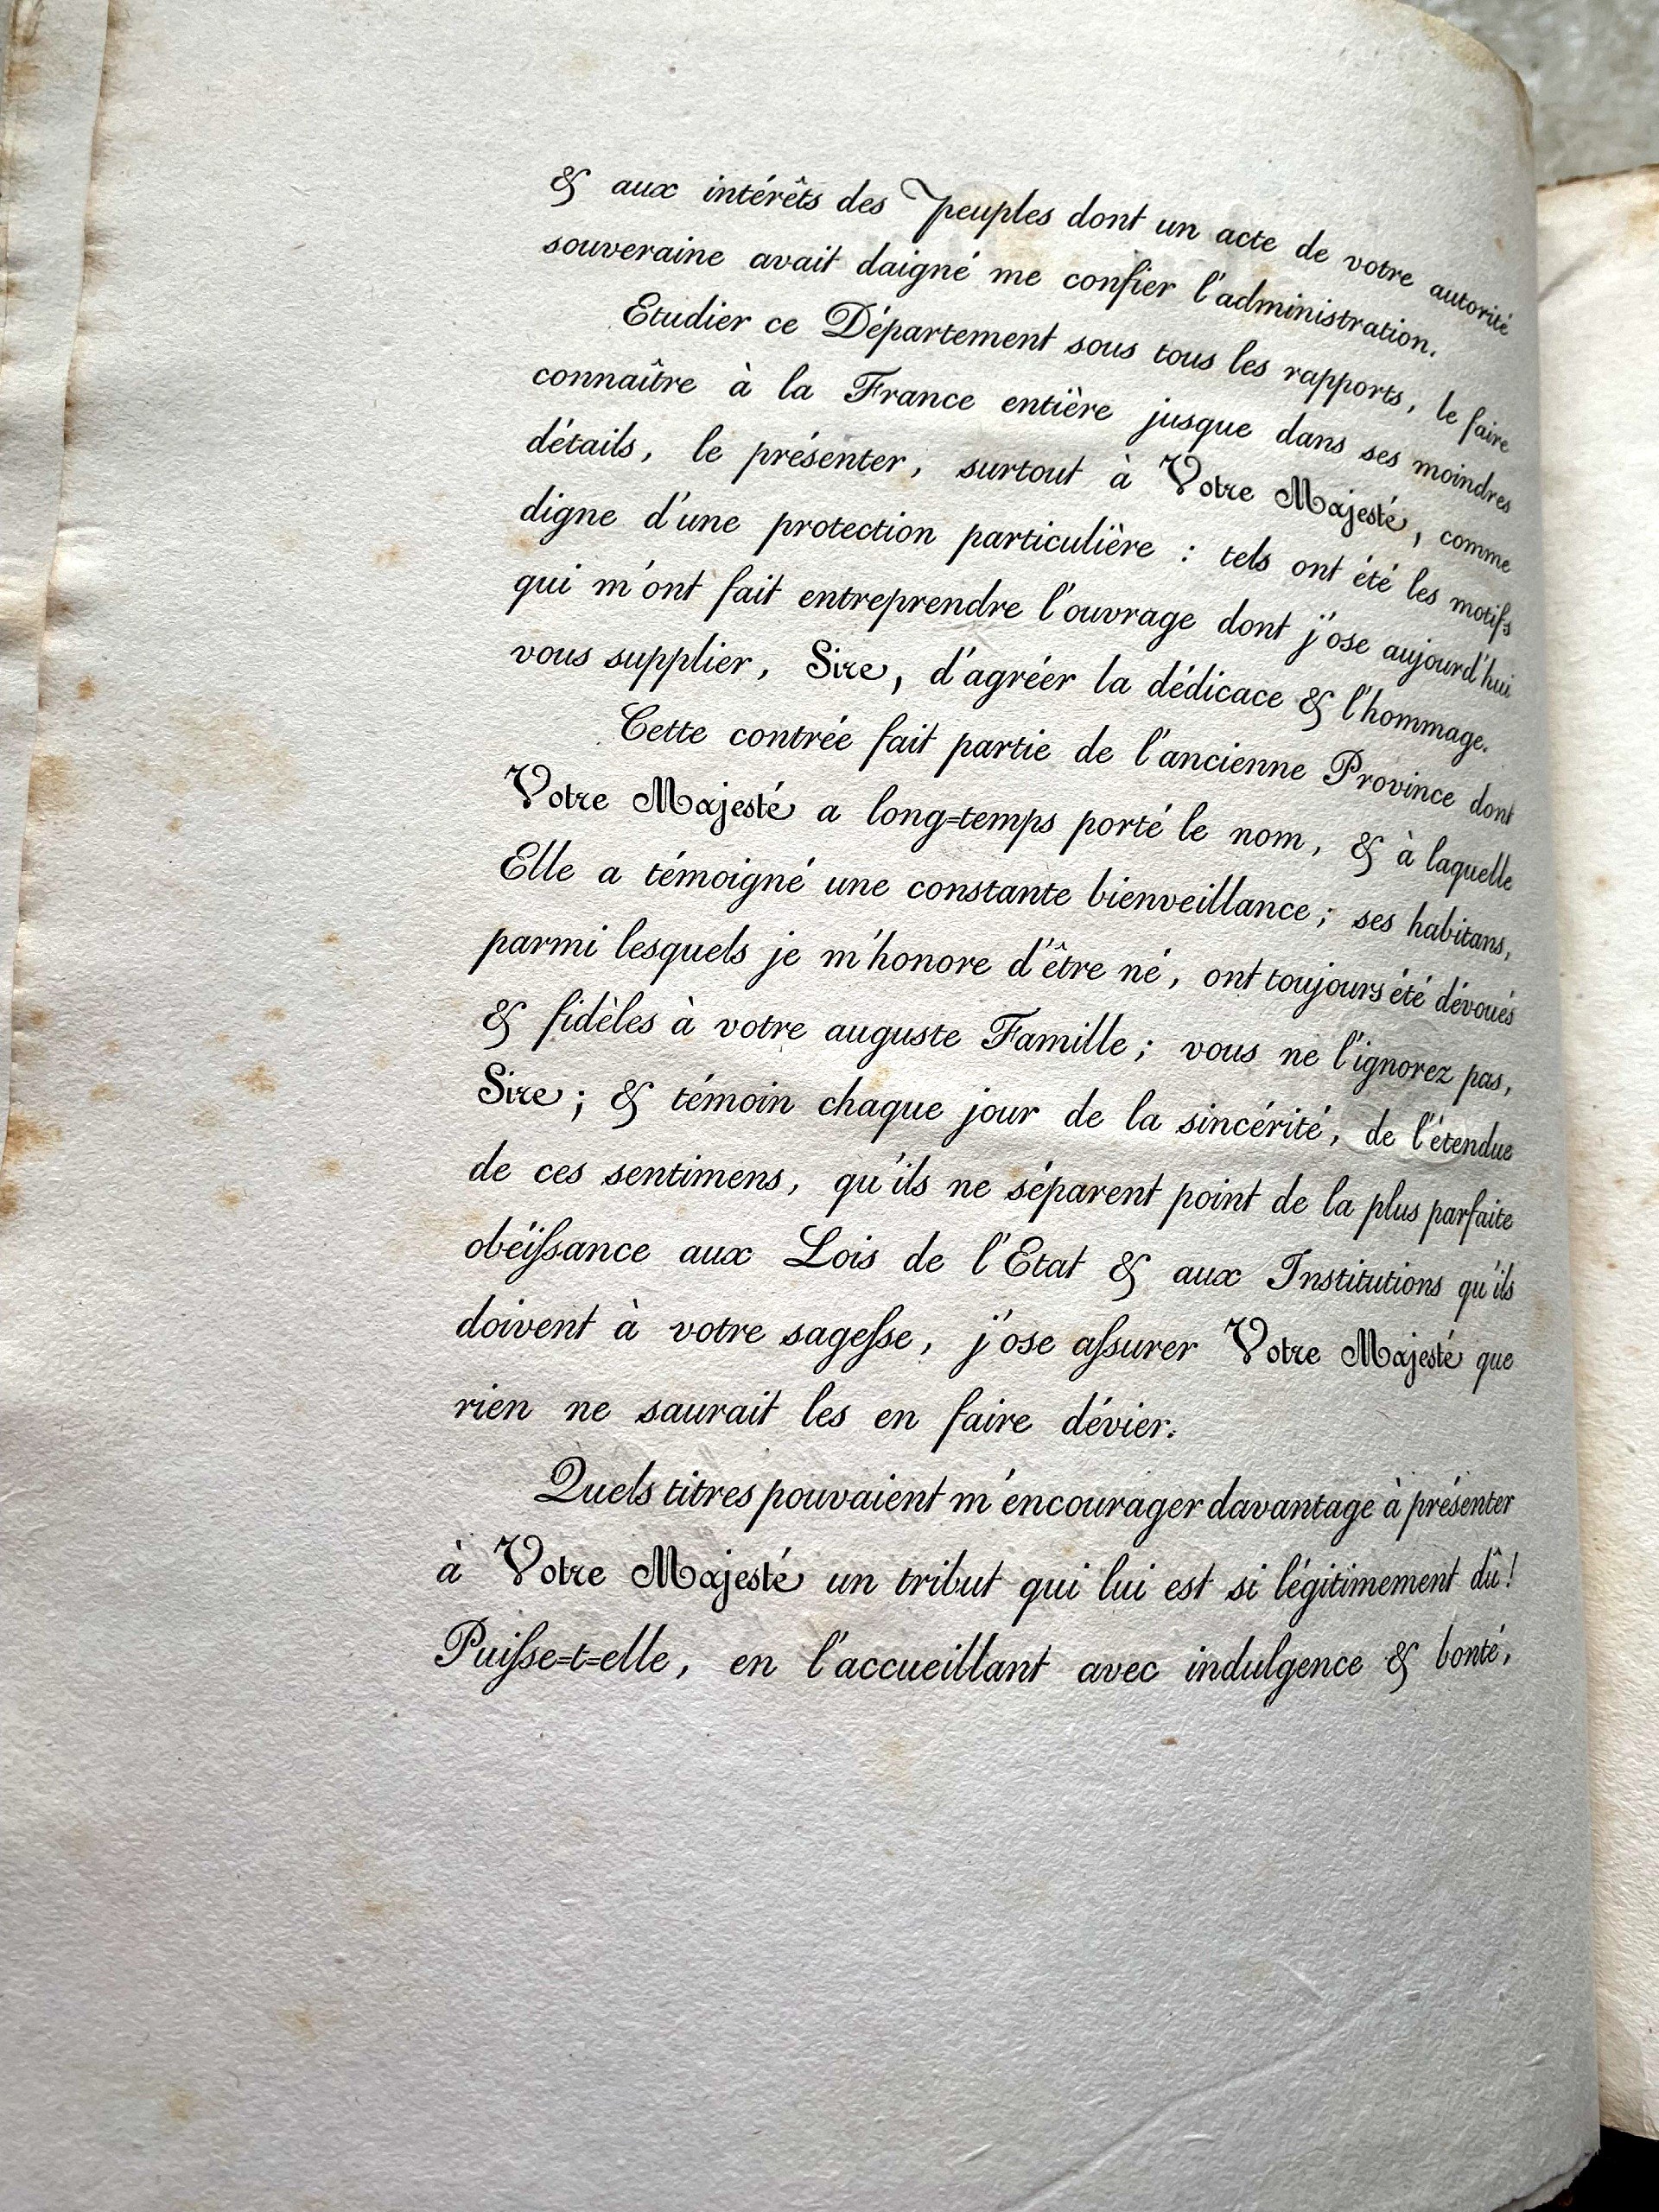 & aux intérêts des peuples dont un acte de votre autorité
souveraine avait daigné me confier l'administration.
Etudier ce Département sous tous les rapports, le faire
connaître à la France entière jusque dans ses moindres
détails, le présenter, surtout à Votre Majesté, comme
digne d'une protection particulière : tels ont été les motifs
qui m'ont fait entreprendre l'ouvrage dont j'ose aujourd'hui
vous supplier, Sire, d'agréer la dédicace & l'hommage.
Cette contrée fait partie de l'ancienne Province dont
Votre Majesté a long=temps porté le nom, & à laquelle
Elle a témoigné une constante bienveillance ; ses habitans,
parmi lesquels je m'honore d'être né, ont toujours été dévoués
& fidèles à votre auguste Famille ; vous ne l'ignorez pas,
Sire ; & témoin chaque jour de la sincérité, de l'étendue
de ces sentimens, qu'ils ne séparent point de la plus parfaite
obéiſsance aux Lois de l'Etat & aux Institutions qu'ils
doivent à votre sageſse, j'ose aſsurer Votre Majesté que
rien ne saurait les en faire dévier.
Quels titres pouvaient m'encourager davantage à présenter
à Votre Majesté un tribut qui lui est si légitimement dû !
Puiſse=t=elle, en l'accueillant avec indulgence & bonté,